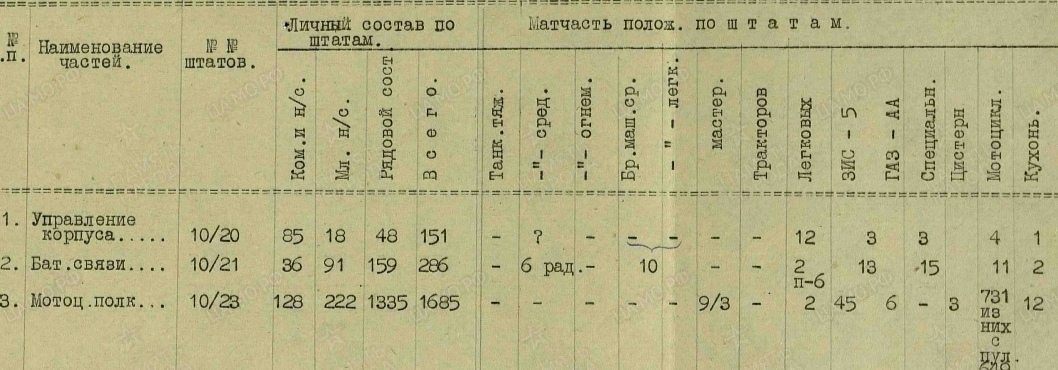 Личный состав по штатам. Матчасть полож. по ш т а т а м.
№ .п. Наименование частей. № № штатов. Ком.и н/с. Мл. н/с. Рядовой сост В с е г о. Танк.тяж. -"- сред. -"- огнем. Бр.маш.ср. - " - легк. мастер. Тракторов Легковых ЗИС - 5 ГАЗ - АА Специальн. Цистерн Мотоцикл. Кухонь.
1. Управление
корпуса..... 10/20 85 18 48 151 - ? - - - - - 12 3 3 4 1
2. Бат.связи.... 10/21 36 91 159 286 - 6 рад.- 10 - - 2 13 -15 11 2
п-6
3. Мотоц.полк... 10/23 128 222 1335 1685 - - - - - 9/3 - 2 45 6 - 3 731 12
из
них
с
пул.